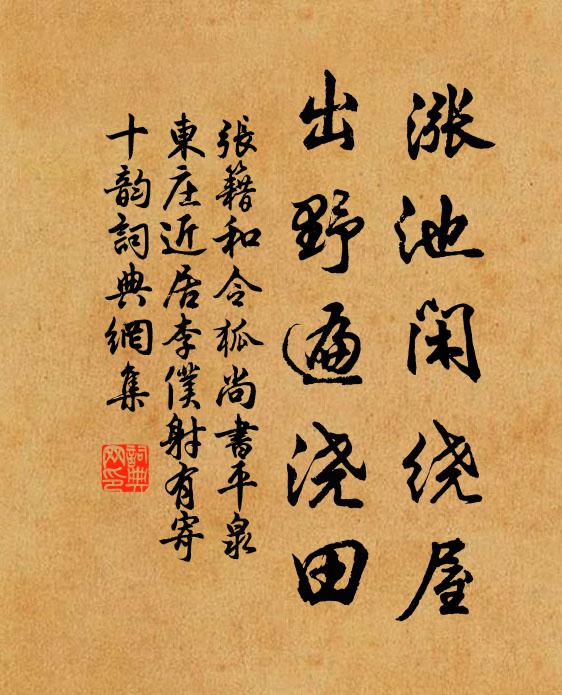 涨池闲绕屋
出野遍浇田
張籍和令狐尚書平泉
東庄近居李僕射有寄
十韵詞典網集
詞典
网印